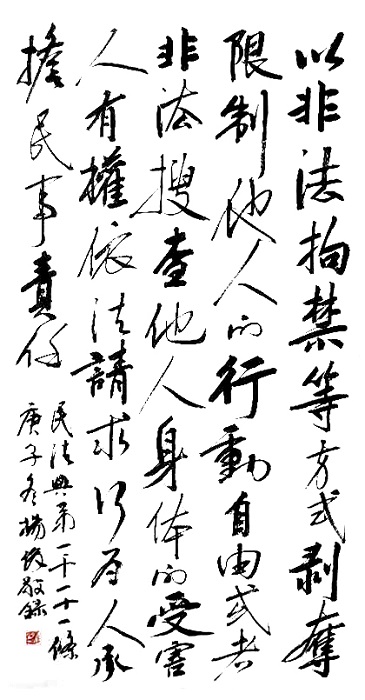 以非法拘禁等方式剥奪
限制他人的行動自由或者
非法搜查他人身体的受害
人有權依法請求行为人承
擔民事責任
民法典第一千一十一條
庚子冬楊敬録